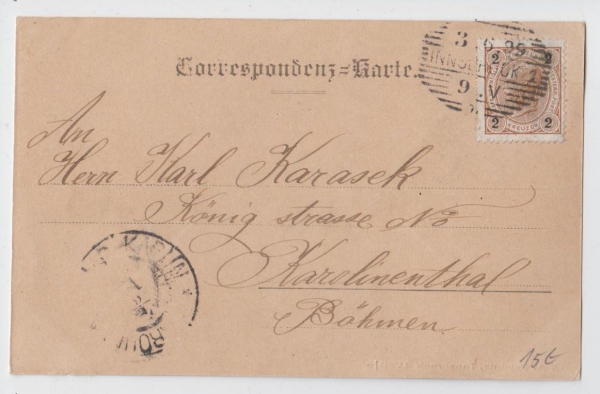 Correspondenz-Karte.
3 6 99
INNSBRUCK
9. V
2 2
2 2
KREUZER
An
Herrn Karl Karasek
König strasse No
Karolinenthal
Böhmen
KAROLIN
15t